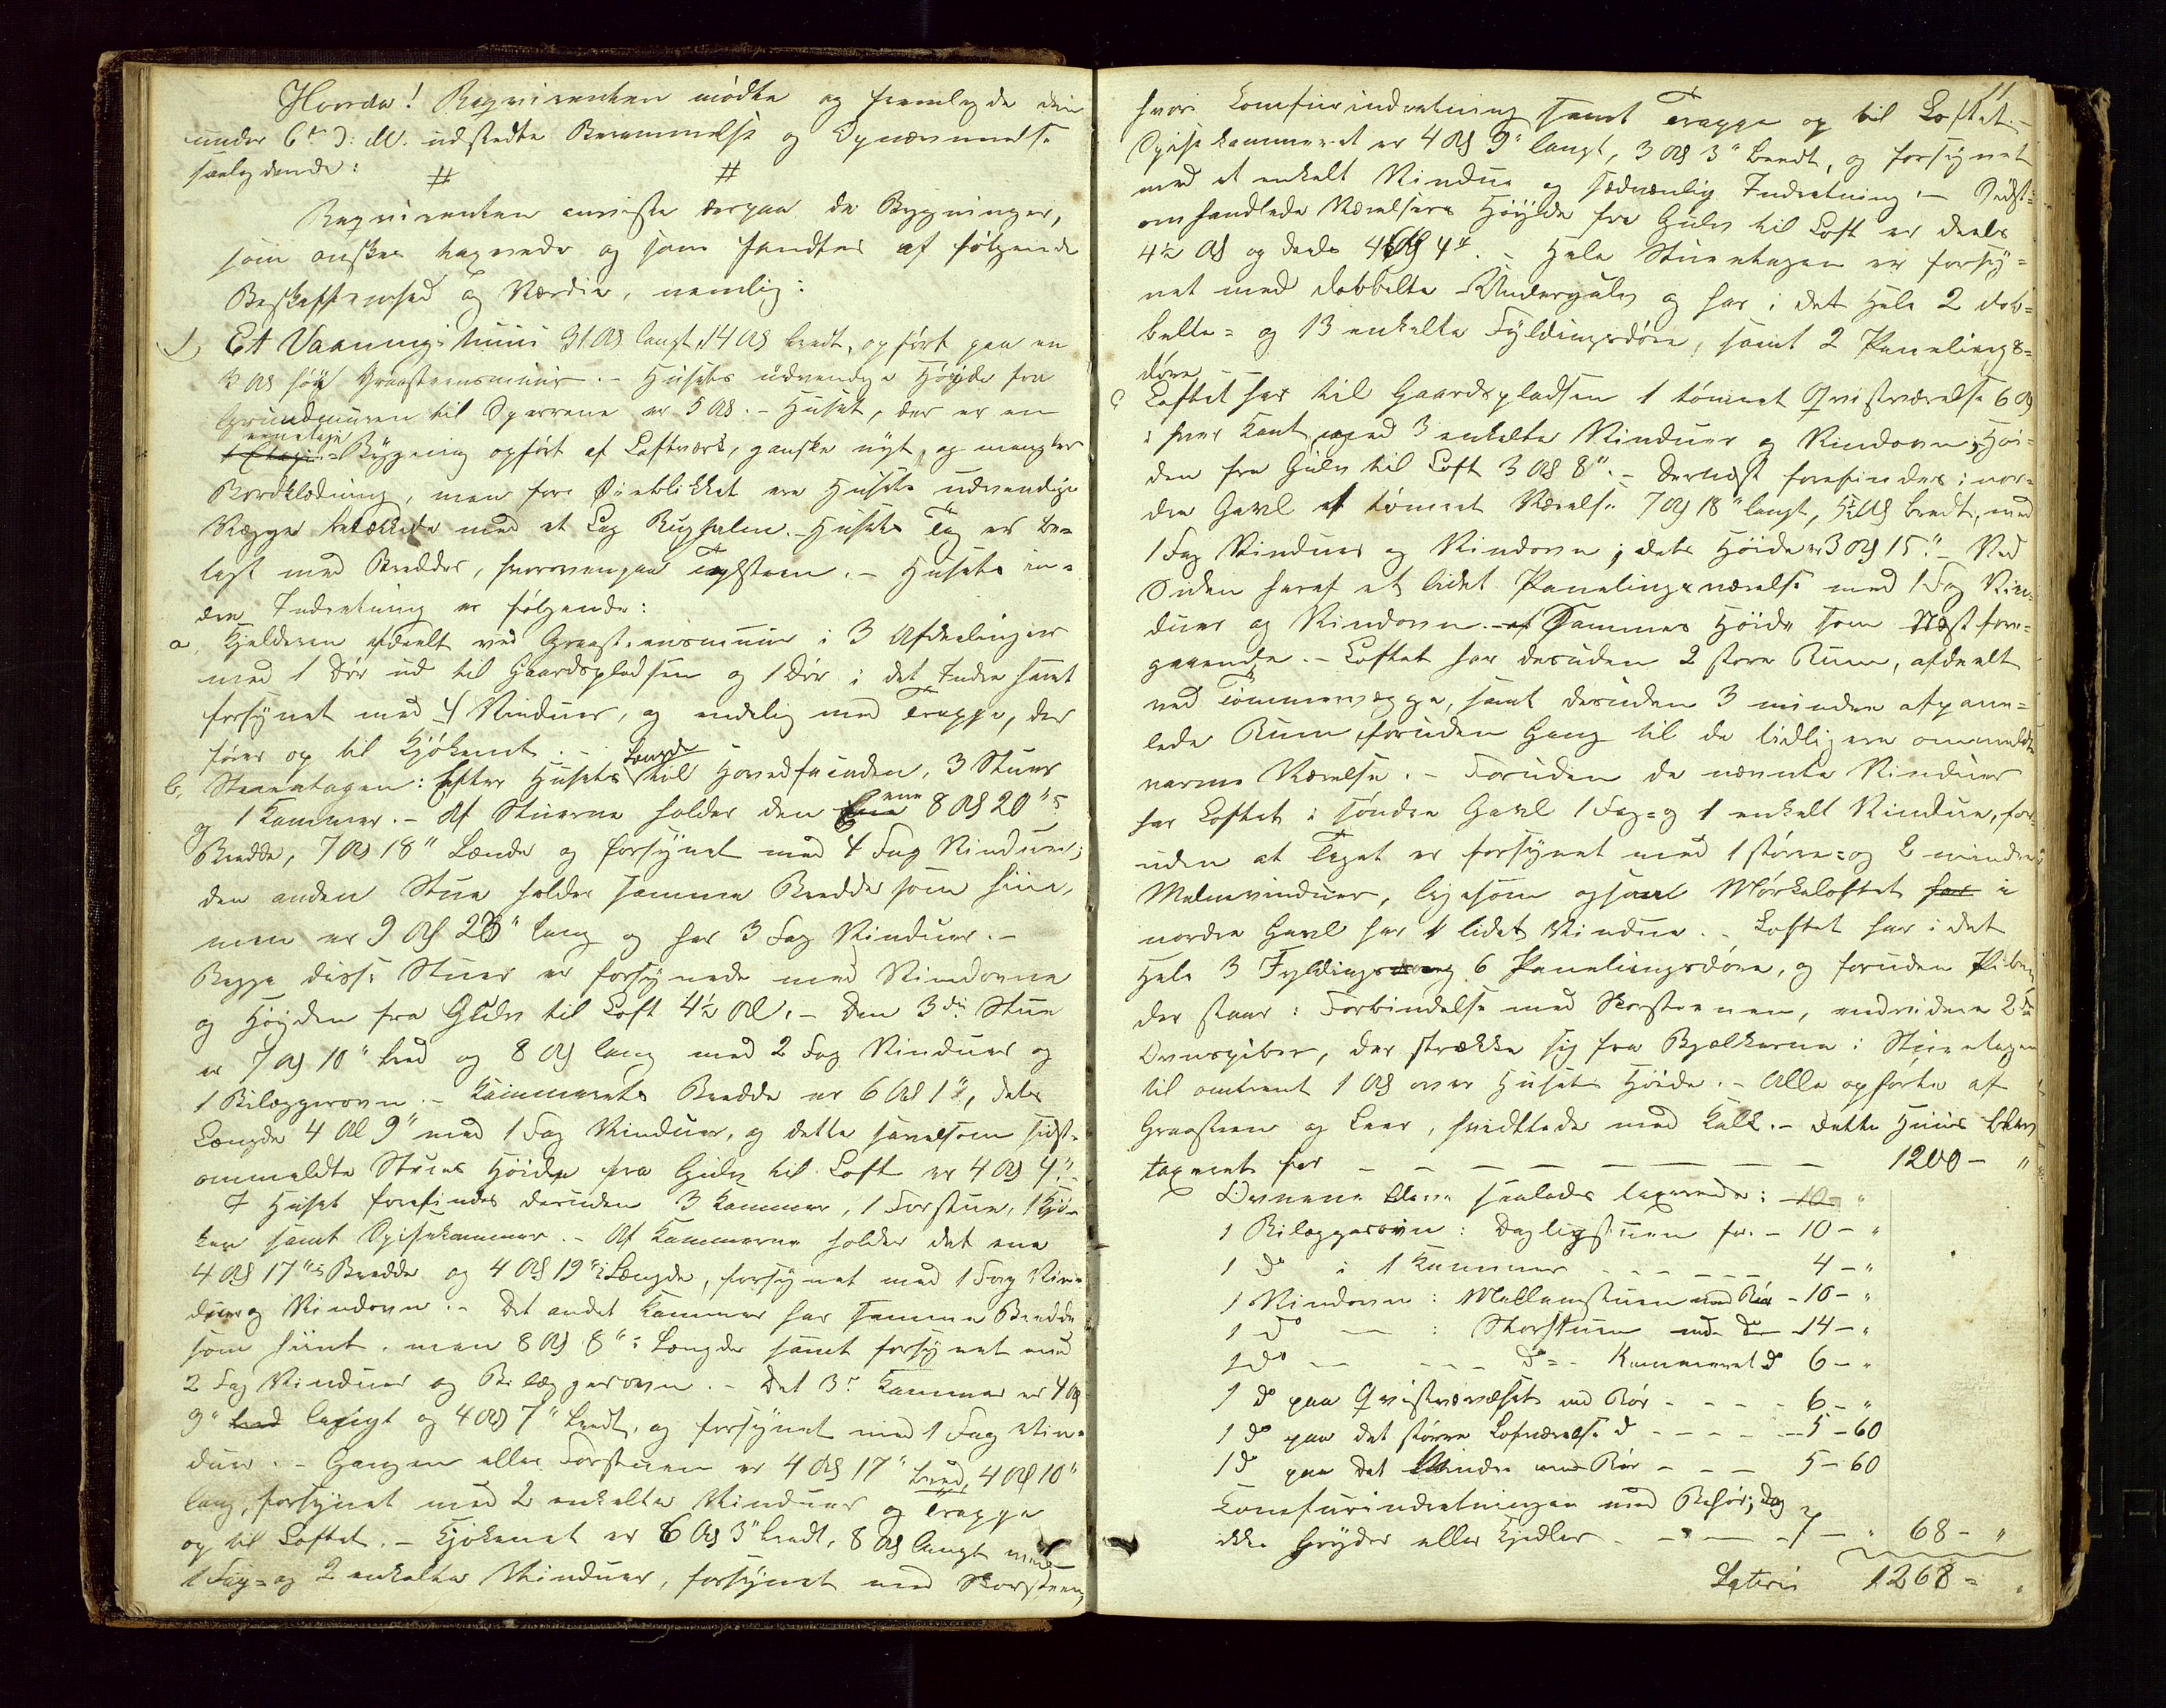 Hvorda! Reqvirenten mødte og fremlagde den
under 6te d: M. udstedte Berammelse og Opnævnelse
saalydende:
# #
Reqvirenten anviste derpaa de Bygninger,
som ønskes taxerede og som fandtes af følgende
Beskaffenhed og Værdie, nemlig:
1, Et Vaanings huus 31 Al langt, 14 Al bredt, opført paa en
3 Al høy Graasteensmuur. - Husets udvendige Høyde fra
Grundmuren til Sperrene er 5 Al. - Huset, der er en
eenetages
1 Etages-Bygning opført af Laftverk, ganske nyt, og mangler
Bordklædning, men for Øieblikket ere Husets udvendige
Vægge betækkede med et Lag Rughalm. - Husets Tag er be-
lagt med Bredder, hvorovenpaa Tagsteen. - Husets in-
dre Indretning er følgende:
a, Kjelderen afdeelt ved Graasteensmuur i 3 Afdeelinger
med 1 Dør ud til Gaardspladsen og 1 Dør i det Indre samt
forsynet med 4 Vinduer, og endelig med Trappe, der
fører op til Kjøkenet. -
b, Stueetagen: Efter Husets Længde til Hovedfacaden, 3 Stuer
og 1 Kammer. - Af Stuerne holder den ene 8 Al 20"s
Bredde, 7 Al 18" Længde og forsynet med 4 Fag Vinduer;
den anden Stue holder samme Bredde som hiin,
men er 9 Al 23" lang og har 3 Fag Vinduer. -
Begge disse Stuer er forsynede med Vindovne
og Høyden fra Gulv til Loft 4½ Al. - Den 3die Stue
er 7 Al 10" bred og 8 Al lang med 2 Fag Vinduer og
1 Bilæggerovn. - Kammerets Bredde er 6 Al 1", dets
Længde 4 Al 9" med 1 Fag Vinduer, og dette saavelsom sidst-
ommeldte Stues Høide fra Gulv til Loft er 4 Al 4".
I Huset forefindes desuden 3 Kammer, 1 Forstue, 1 Kjø-
ken samt Spisekammer. - Af Kammerne holder det ene
4 Al 17"s Bredde og 4 Al 19"s Længde, forsynet med 1 Fag Vin-
duer og Vindovn. - Det andet Kammer har samme Bredde
som hiint, men 8 Al 8"s Længde samt forsynet med
2 Fag Vinduer og Bilæggerovn. - Det 3die Kammer er 4 Al
9" bred langt og 4 Al 7" bredt, og forsynet med 1 Fag Vin-
duer. - Gangen eller Forstuen er 4 Al 17" bred, 4 Al 10"
lang, forsynet med 2 enkelte Vinduer og Trappe
op til Loftet. - Kjøkenet er 6 Al 3" bredt, 8 Al langt med
1 Fag- og 2 enkelte Vinduer, forsynet med Skorsteen,
11
hvori Komfurindretning samt Trappe op til Loftet. -
Spisekammeret er 4 Al 9" langt, 3 Al 3" bredt, og forsynet
med et enkelt Vindue og sædvanlig Indretning. - Sidst-
omhandlede Værelsers Høyde fra Gulv til Loft er deels
4½ Al og deels 4 Al 4". - Hele Stueetagen er forsy-
net med dobbelte Undergulv og har i det Hele 2 dob-
belte- og 13 enkelte Fyldingsdøre, samt 2 Panelings-
døre. -
c, Loftet har til Gaardspladsen 1 tømret Qvistværelse 6 Al
i hver Kant med 3 enkelte Vinduer og Vindovn; Høi-
den fra Gulv til Loft 3 Al 8". - Dernæst forefindes i nor-
dre Gavl et tømret Værelse 7 Al 18" langt, 5½ Al bredt, med
1 Fag Vinduer og Vindovn; dets Høide er 3 Al 15". - Ved
Siden heraf et lidet Panelingsværelse med 1 Fag Vin-
duer og Vindovn. - af Sammes Høide som Næst fore-
gaaende. - Loftet har desuden 2 store Rum, afdeelt
ved Tømmervægge, samt desuden 3 mindre afpane-
lede Rum foruden Gang til de tidligere ommeldte
varme Værelse. - Foruden de nævnte Vinduer
har Loftet i søndre Gavl 1 Fag- og 1 enkelt Vindue, for-
uden at Taget er forsynet med 1 større- og 2 mindre
Malmvinduer, ligesom ogsaa Mørkeloftet har i
nordre Gavl har 1 lidet Vindue. - Loftet har i det
Hele 3 Fyldings og 6 Panelingsdøre, og foruden Piben,
der staar i Forbindelse med Skorsteenen, endvidere 2de
Ovnspiber, der strække sig fra Bjælkerne i Stueetagen
til omtrent 1 Al over Husets Høide. - Alle opførte af
Graasteen og Leer, hvidttede med Kalk. - Dette Huus blev
taxeret for - - - - - - - - 1200 - "
Ovnene bleve saaledes taxerede: 10 - "
1 Bilæggerovn i Dagligstuen for - 10 - "
1 do i 1 Kammer - - - - 4 - "
1 Vindovn i Mellemstuen med Rør - 10 - "
1 do - - i Storstuen med do 14 - "
1 do - - - - do - Kammeret do 6 - "
1 do paa Qvistværelset med Rør - - - 6 - "
1 do paa det større Loftværelse do - - - - 5 - 60
1 do paa det Mindre med Rør - - - 5 - 60
Komfurindretningen med Behør, dog
ikke Gryder eller Kjedler - - - - 7 - " 68 - "
Lateris 1268 - "